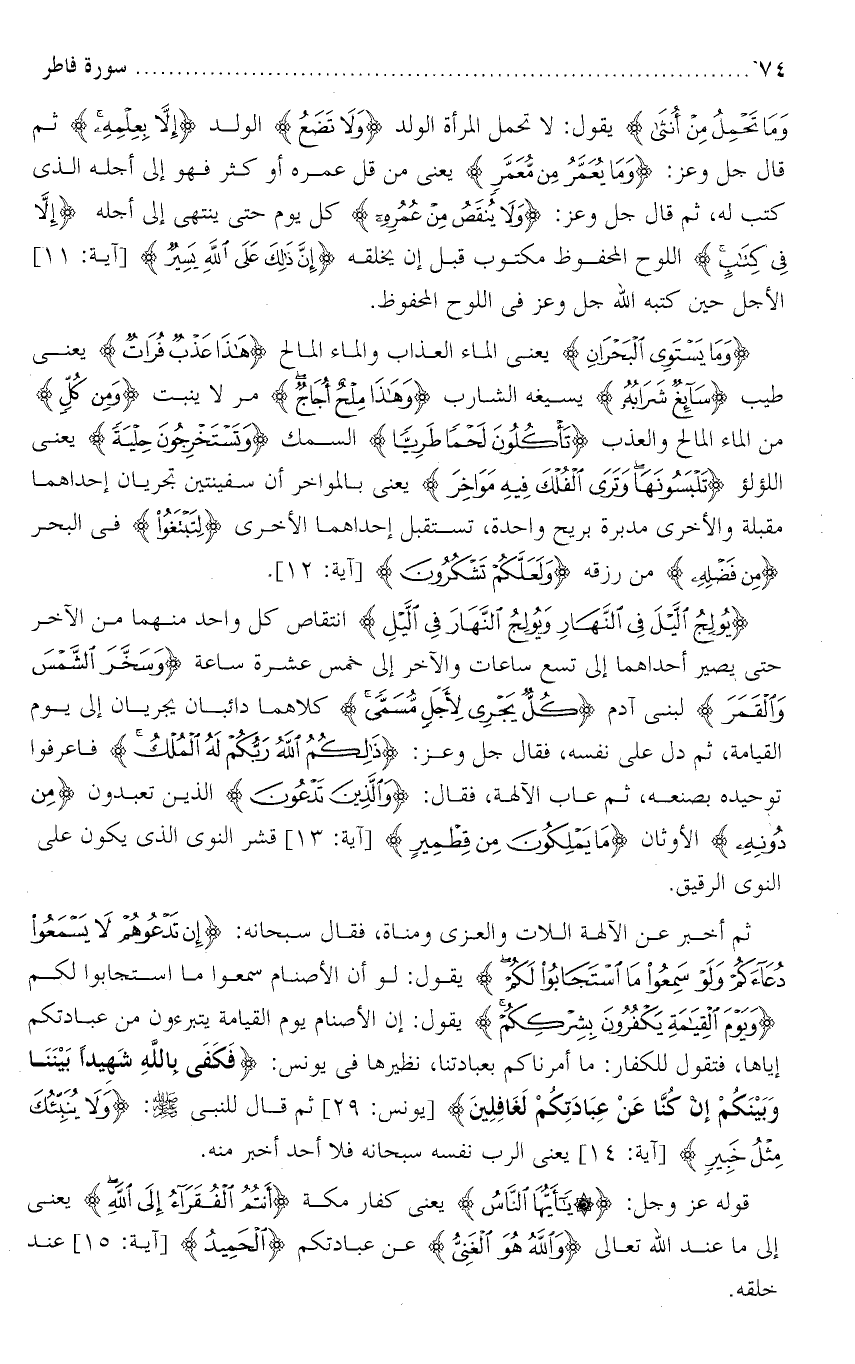 ٧٤ ........................................................................ سورة فاطر
وَمَا تَحْمِلُ مِنْ أُنثَىٰ ﴾ يقول: لا تحمل المرأة الولد ﴿وَلَا تَضَعُ﴾ الولد ﴿إِلَّا بِعِلْمِهِۦۚ﴾ ثم
قال جل وعز: ﴿وَمَا يُعَمَّرُ مِن مُّعَمَّرٍ ﴾ يعنى من قل عمره أو كثر فهو إلى أجله الذى
كتب له، ثم قال جل وعز: ﴿وَلَا يُنقَصُ مِنْ عُمُرِهِۦٓ﴾ كل يوم حتى ينتهى إلى أجله ﴿إِلَّا
فِى كِتَٰبٍۚ﴾ اللوح المحفوظ مكتوب قبل إن يخلقه ﴿إِنَّ ذَٰلِكَ عَلَى ٱللَّهِ يَسِيرٌ ﴾ [آية: ١١]
الأجل حين كتبه الله جل وعز فى اللوح المحفوظ.
﴿وَمَا يَسْتَوِى ٱلْبَحْرَانِ ﴾ يعنى الماء العذاب والماء المالح ﴿هَٰذَا عَذْبٌ فُرَاتٌ﴾ يعنى
طيب ﴿سَآئِغٌ شَرَابُهُۥ ﴾ يسيغه الشارب ﴿وَهَٰذَا مِلْحٌ أُجَاجٌۖ﴾ مر لا ينبت ﴿وَمِن كُلٍّ﴾
من الماء المالح والعذب ﴿تَأْكُلُونَ لَحْمًا طَرِيًّا﴾ السمك ﴿وَتَسْتَخْرِجُونَ حِلْيَةً﴾ يعنى
اللؤلؤ ﴿تَلْبَسُونَهَاۖ وَتَرَى ٱلْفُلْكَ فِيهِ مَوَاخِرَ ﴾ يعنى بالمواخر أن سفينتين تجريان إحداهما
مقبلة والأخرى مدبرة بريح واحدة، تستقبل إحداهما الأخرى ﴿لِتَبْتَغُوا۟ ﴾ فى البحر
﴿مِن فَضْلِهِۦ ﴾ من رزقه ﴿وَلَعَلَّكُمْ تَشْكُرُونَ﴾ [آية: ١٢].
﴿يُولِجُ ٱلَّيْلَ فِى ٱلنَّهَارِ وَيُولِجُ ٱلنَّهَارَ فِى ٱلَّيْلِ ﴾ انتقاص كل واحد منهما من الآخر
حتى يصير أحداهما إلى تسع ساعات والآخر إلى خمس عشرة ساعة ﴿وَسَخَّرَ ٱلشَّمْسَ
وَٱلْقَمَرَ ﴾ لبنى آدم ﴿كُلٌّ يَجْرِى لِأَجَلٍ مُّسَمًّىۚ﴾ كلاهما دائبان يجريان إلى يوم
القيامة، ثم دل على نفسه، فقال جل وعز: ﴿ذَٰلِكُمُ ٱللَّهُ رَبُّكُمْ لَهُ ٱلْمُلْكُۚ﴾ فاعرفوا
توحيده بصنعه، ثم عاب الآلهة، فقال: ﴿وَٱلَّذِينَ تَدْعُونَ﴾ الذين تعبدون ﴿مِن
دُونِهِۦ ﴾ الأوثان ﴿مَا يَمْلِكُونَ مِن قِطْمِيرٍ ﴾ [آية: ١٣] قشر النوى الذى يكون على
النوى الرقيق.
ثم أخبر عن الآلهة اللات والعزى ومناة، فقال سبحانه: ﴿إِن تَدْعُوهُمْ لَا يَسْمَعُوا۟
دُعَآءَكُمْ وَلَوْ سَمِعُوا۟ مَا ٱسْتَجَابُوا۟ لَكُمْۖ ﴾ يقول: لو أن الأصنام سمعوا ما استجابوا لكم
﴿وَيَوْمَ ٱلْقِيَٰمَةِ يَكْفُرُونَ بِشِرْكِكُمْۚ﴾ يقول: إن الأصنام يوم القيامة يتبرءون من عبادتكم
إياها، فتقول للكفار: ما أمرناكم بعبادتنا، نظيرها فى يونس: ﴿فَكَفَى بِاللَّهِ شَهِيداً بَيْنَنَا
وَبَيْنَكُمْ إِنْ كُنَّا عَنْ عِبَادَتِكُمْ لَغَافِلِينَ﴾ [يونس: ٢٩] ثم قال للنبى ﷺ: ﴿وَلَا يُنَبِّئُكَ
مِثْلُ خَبِيرٍ ﴾ [آية: ١٤] يعنى الرب نفسه سبحانه فلا أحد أخبر منه.
قوله عز وجل: ﴿۞ يَٰٓأَيُّهَا ٱلنَّاسُ ﴾ يعنى كفار مكة ﴿أَنتُمُ ٱلْفُقَرَآءُ إِلَى ٱللَّهِۖ ﴾ يعنى
إلى ما عند الله تعالى ﴿وَٱللَّهُ هُوَ ٱلْغَنِىُّ ﴾ عن عبادتكم ﴿ٱلْحَمِيدُ﴾ [آية: ١٥] عند
خلقه.